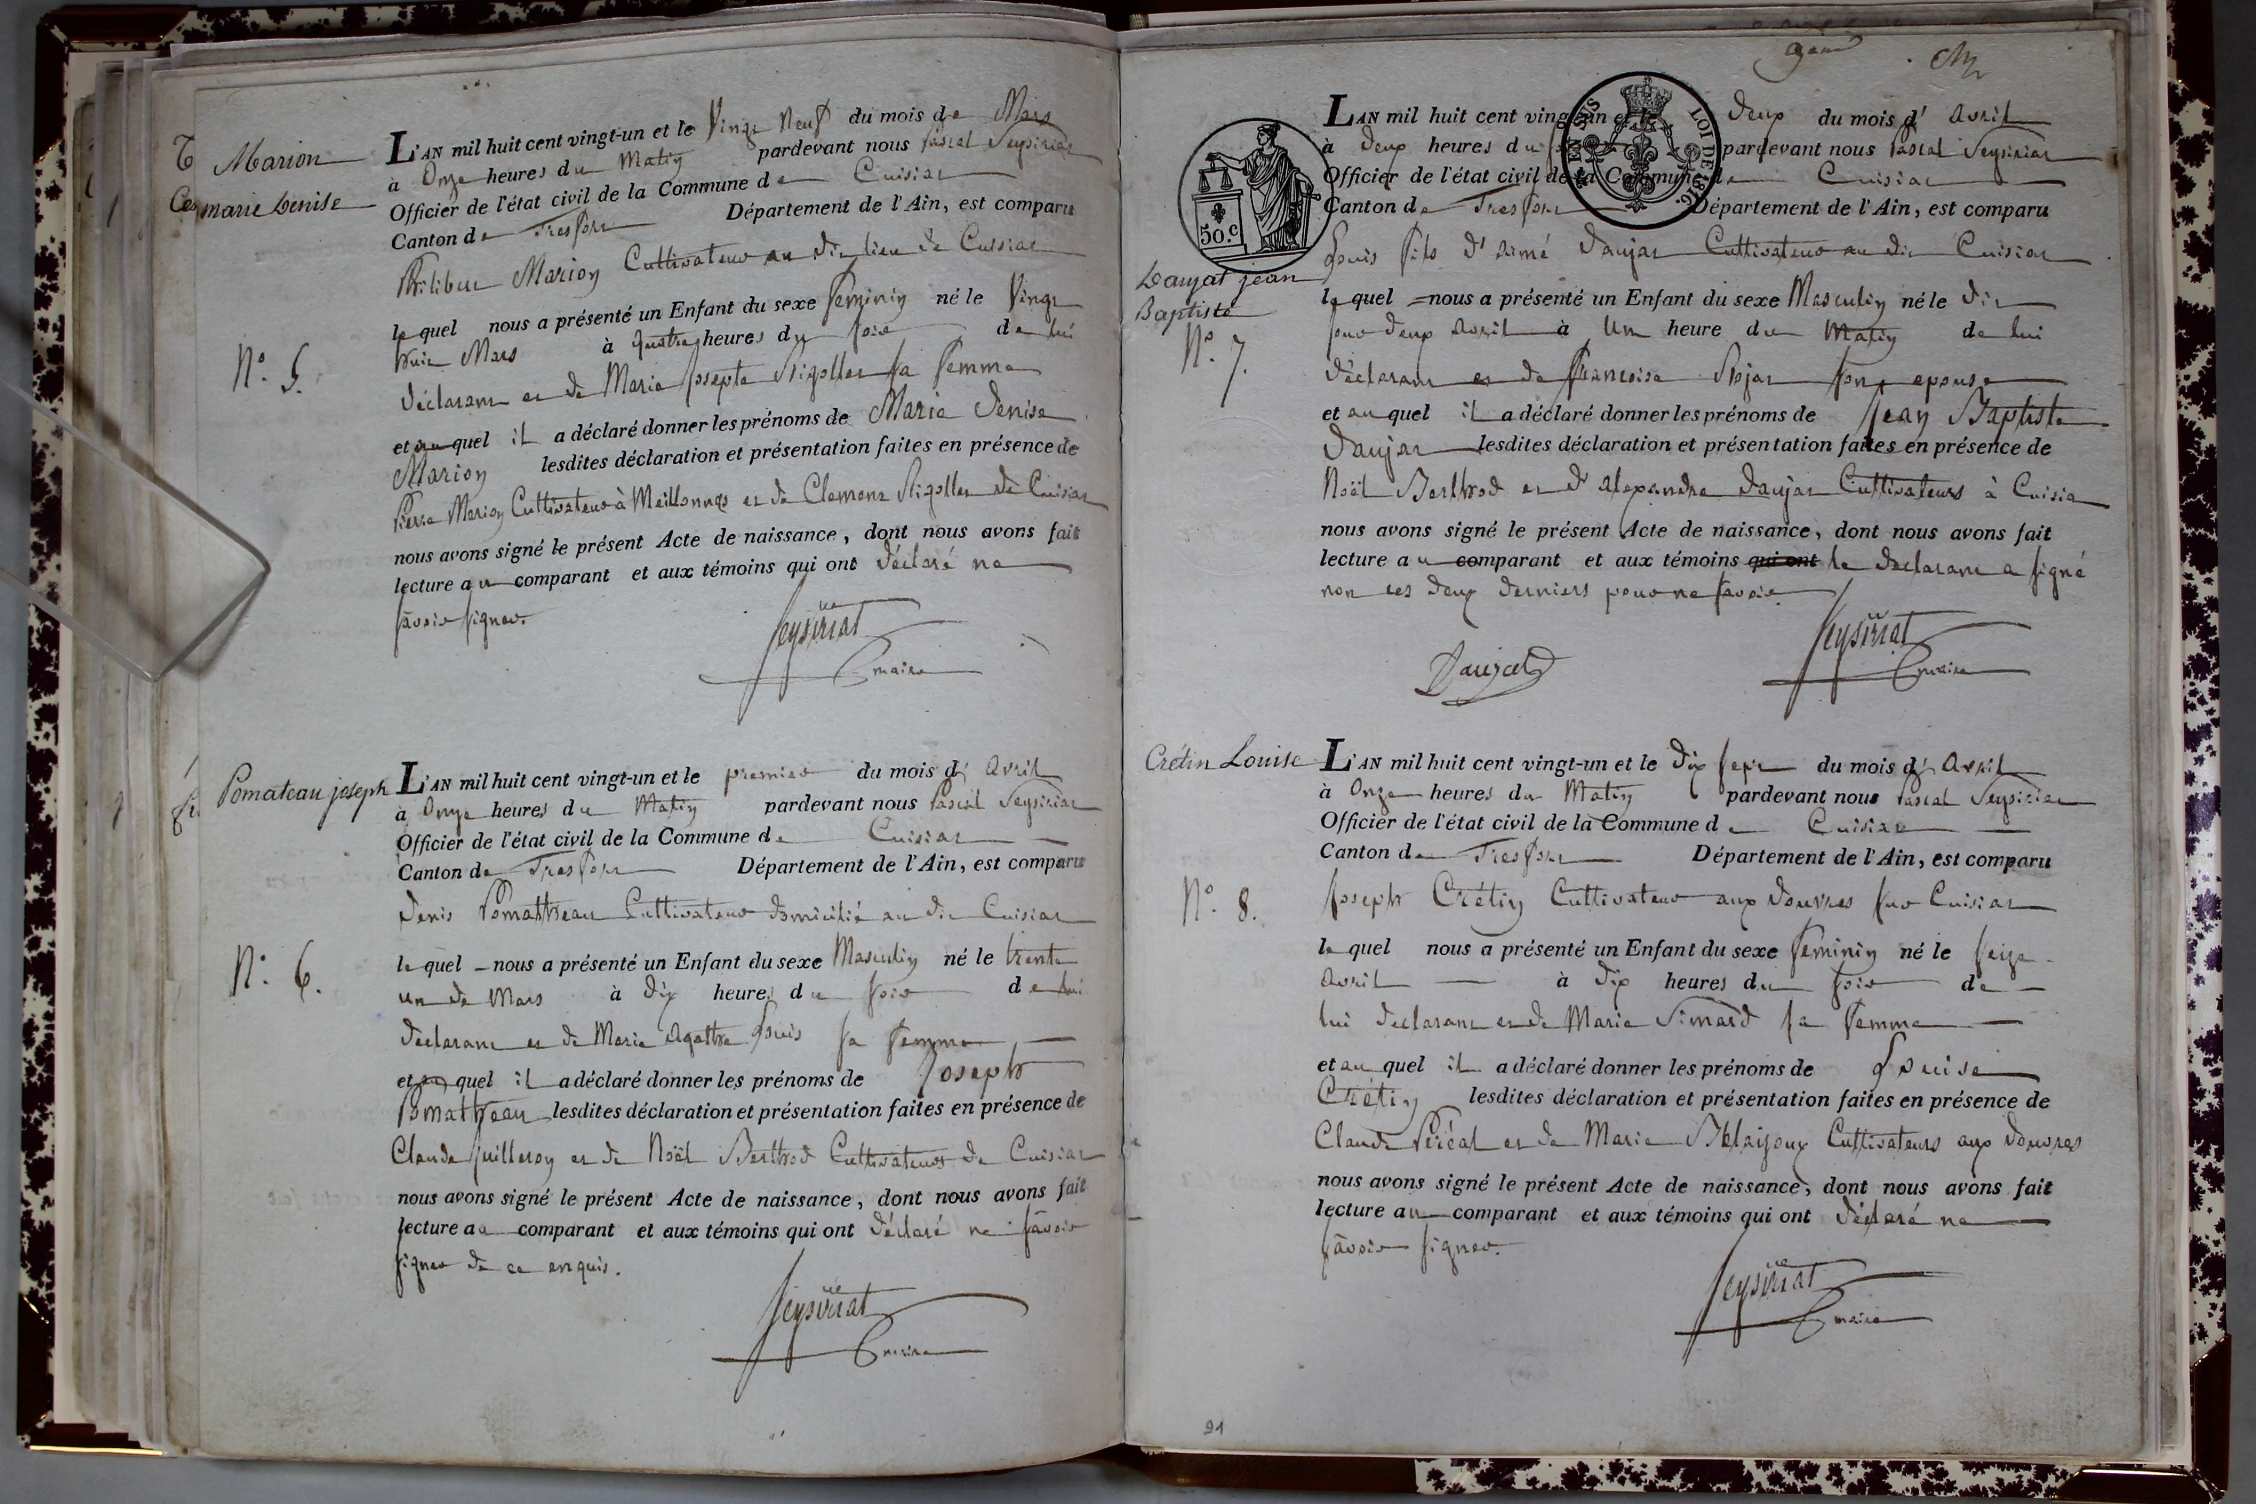 Marion
marie Denise
N.° 5.
L'AN mil huit cent vingt-un et le Vingt Neuf du mois de Mars
à Onze heures du Matin pardevant nous Pascal Seysiriat
Officier de l'état civil de la Commune de Cuisiat
Canton de Tresfort Département de l'Ain, est comparu
Philibert Marion Cultivateur au dit lieu de Cuisiat
lequel nous a présenté un Enfant du sexe feminin né le Vingt
huit Mars à quatre heures du soir de lui
déclarant et de Marie Josepte Rigollet sa femme
et auquel il a déclaré donner les prénoms de Marie Denise
Marion lesdites déclaration et présentation faites en présence de
Pierre Marion Cultivateur à Meillonnas et de Clement Rigollet de Cuisiat
nous avons signé le présent Acte de naissance, dont nous avons fait
lecture au comparant et aux témoins qui ont déclaré ne
savoir signer.
Seysiriat
maire
Pomateau joseph
N.° 6.
L'AN mil huit cent vingt-un et le premier du mois d'avril
à Onze heures du Matin pardevant nous Pascal Seysiriat
Officier de l'état civil de la Commune de Cuisiat
Canton de Tresfort Département de l'Ain, est comparu
Denis Pomatheau Cultivateur domicilié au dit Cuisiat
lequel nous a présenté un Enfant du sexe Masculin né le trente
un de Mars à dix heures du soir de lui
déclarant et de Marie Agathe Louis sa femme
et auquel il a déclaré donner les prénoms de Joseph
Pomatheau lesdites déclaration et présentation faites en présence de
Claude Guilleron et de Noël Berthod Cultivateurs de Cuisiat
nous avons signé le présent Acte de naissance, dont nous avons fait
lecture au comparant et aux témoins qui ont déclaré ne savoir
signer de ce enquis.
Seysiriat
maire
50.c
LOI DE 1816.
Daujat jean
Baptiste
N.° 7.
L'AN mil huit cent vingt-un et le deux du mois d'avril
à deux heures du pardevant nous Pascal Seysiriat
Officier de l'état civil de la Commune de Cuisiat
Canton de Tresfort Département de l'Ain, est comparu
Louis fils d'aimé Daujat Cultivateur au dit Cuisiat
lequel nous a présenté un Enfant du sexe Masculin né le dit
jour deux avril à Un heure du Matin de lui
déclarant et de françoise Pojat son epouse
et auquel il a déclaré donner les prénoms de Jean Baptiste
Daujat lesdites déclaration et présentation faites en présence de
Noël Berthod et d'alexandre Daujat Cultivateurs à Cuisia
nous avons signé le présent Acte de naissance, dont nous avons fait
lecture au comparant et aux témoins qui ont le déclarant a signé
non les deux derniers pour ne savoir
Daujat
Seysiriat
maire
Crétin Louise
N.° 8.
L'AN mil huit cent vingt-un et le dix sept du mois d'avril
à Onze heures du Matin pardevant nous Pascal Seysiriat
Officier de l'état civil de la Commune de Cuisiat
Canton de Tresfort Département de l'Ain, est comparu
Joseph Crétin Cultivateur aux Douvres sur Cuisiat
lequel nous a présenté un Enfant du sexe feminin né le seize
avril à dix heures du soir de
lui déclarant et de Marie Simard sa femme
et auquel il a déclaré donner les prénoms de Louise
Crétin lesdites déclaration et présentation faites en présence de
Claude Péréal et de Marie Cultivateurs aux Douvres
nous avons signé le présent Acte de naissance, dont nous avons fait
lecture au comparant et aux témoins qui ont déclaré ne
savoir signer.
Seysiriat
maire
21